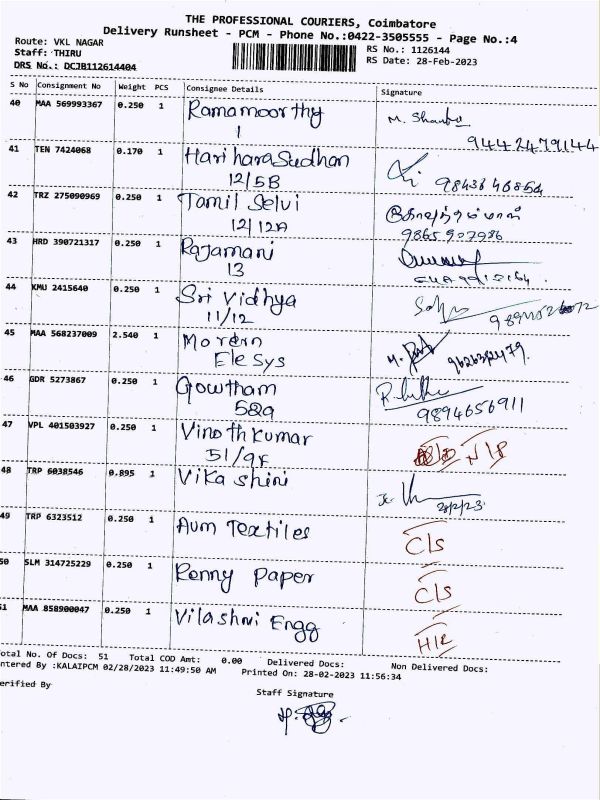 THE PROFESSIONAL COURIERS, Coimbatore
Delivery Runsheet - PCM - Phone No.:0422-3505555 - Page No.:4
Route: VKL NAGAR
RS No.: 1126144
Staff: THIRU
RS Date: 28-Feb-2023
DRS No.: DCJB112614404
S No Consignment No Weight PCS Consignee Details Signature
40 MAA 569993367 0.250 1 Ramamoorthy M.
1 9442479144
41 TEN 7424068 0.170 1 Hari hara Sudhan
12/5B
42 TRZ 275090969 0.250 1 Tamil Selvi
12/12A 9865907986
43 HRD 390721317 0.250 1 Rajamani
13
44 KMU 2415640 0.250 1 Sri Vidhya
11/12
45 MAA 568237009 2.540 1 Mordern
Ele Sys
46 GDR 5273867 0.250 1 Gowtham
58a 9894656911
47 VPL 401503927 0.250 1 Vinoth Kumar
51/9F N/S
48 TRP 6038546 0.895 1 Vika shini
28/2/23
49 TRP 6323512 0.250 1 Aum Textiles C/S
50 SLM 314725229 0.250 1 Renny Paper C/S
51 MAA 858900047 0.250 1 Vilashni Engg
otal No. Of Docs: 51 Total COD Amt: 0.00 Delivered Docs: Non Delivered Docs:
ntered By :KALAIPCM 02/28/2023 11:49:50 AM Printed On: 28-02-2023 11:56:34
erified By
Staff Signature